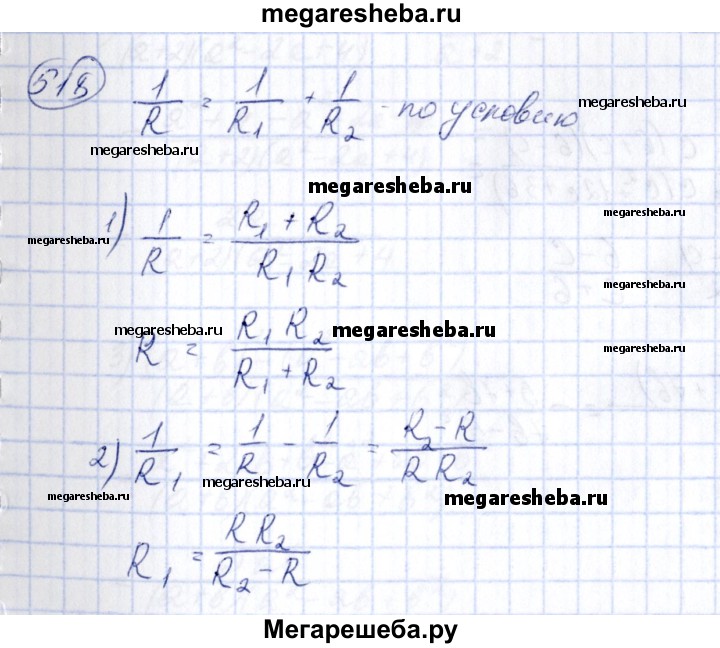 megaresheba.ru
518 1/R = 1/R₁ + 1/R₂ - по условию megaresheba.ru
megaresheba.ru
megaresheba.ru
megaresheba.ru
1) 1/R = (R₁ + R₂)/(R₁ R₂)
megaresheba.ru
megaresheba.ru megaresheba.ru
R = (R₁ R₂)/(R₁ + R₂) megaresheba.ru
2) 1/R₁ = 1/R - 1/R₂ = (R₂ - R)/(R R₂)
megaresheba.ru megaresheba.ru megaresheba.ru
megaresheba.ru
R₁ = (R R₂)/(R₂ - R)
Мегарешеба.ру